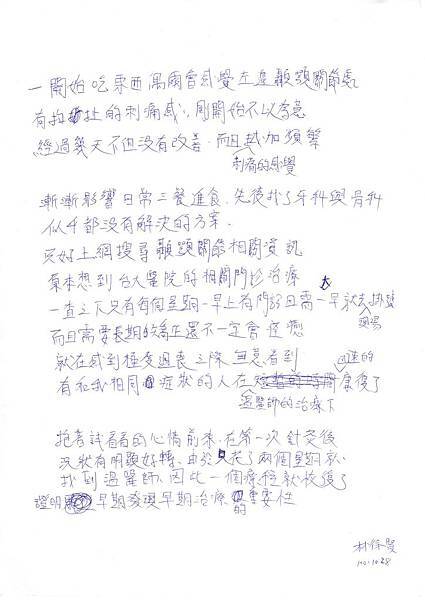 一開始吃東西偶爾會感覺左邊顳顎關節處
有拉扯的刺痛感，剛開始不以為意
經過幾天不但沒有改善，而且越加頻繁
刺痛的感覺
漸漸影響日常三餐進食，先後找了牙科與骨科
似乎都沒有解決的方案，
只好上網搜尋顳顎關節相關資訊
原本想到台大醫院的相關門診治療
一查之下只有每個星期一早上有門診且需一大早就去掛號
現場
而且需要長期的矯正還不一定會痊癒
就在感到極度沮喪之際無意看到
有和我相同症狀的人在短時間康復了
溫醫師的治療下
抱著試看看的心情前來，在第一次針灸後
況狀有明顯好轉，由於只花了兩個星期就
找到溫醫師，因此一個療程就恢復了
證明早期發現早期治療的重要性
100.10.28